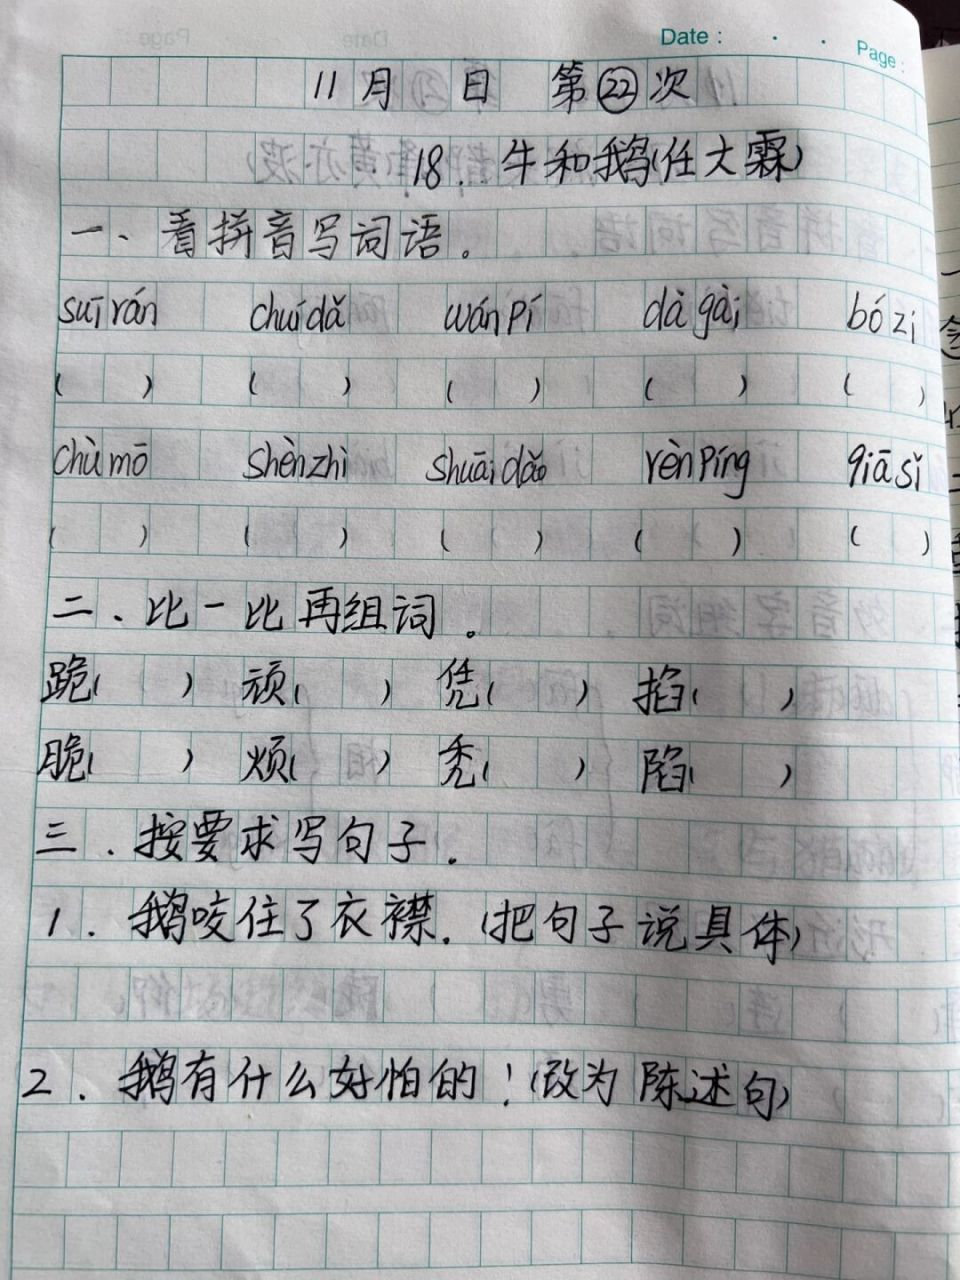 Date :
Page :
11月 日 第㉒次
18. 牛和鹅(任大霖)
一、看拼音写词语。
suī rán chuí dǎ wán pí dà gài bó zi
( ) ( ) ( ) ( ) ( )
chù mō shèn zhì shuāi dǎo rèn píng qiā sǐ
( ) ( ) ( ) ( ) ( )
二、比一比再组词。
跪( ) 顽( ) 凭( ) 掐( )
脆( ) 烦( ) 秃( ) 陷( )
三.按要求写句子.
1. 鹅咬住了衣襟.(把句子说具体)
2. 鹅有什么好怕的!(改为陈述句)